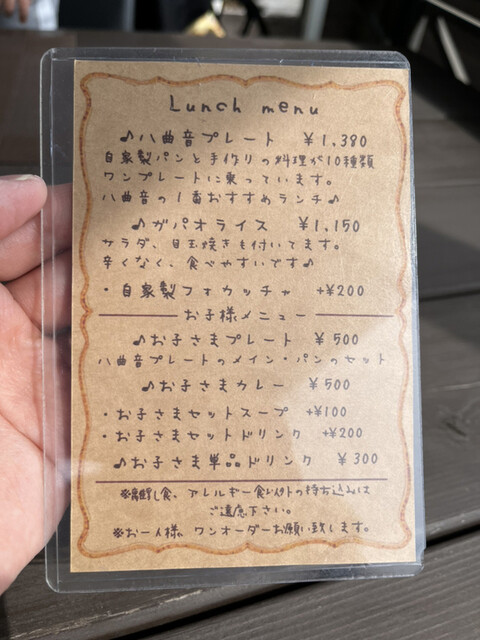 Lunch menu
♪八曲音プレート ¥1,380
自家製パンと手作りの料理が10種類
ワンプレートに乗っています。
八曲音の1番おすすめランチ♪
♪ガパオライス ¥1,150
サラダ、目玉焼きも付いてます。
辛くなく、食べやすいです♪
・自家製フォカッチャ +¥200
お子様メニュー
♪お子さまプレート ¥500
八曲音プレートのメイン・パンのセット
♪お子さまカレー ¥500
・お子さまセットスープ +¥100
・お子さまセットドリンク +¥200
♪お子さま単品ドリンク ¥300
※離乳食、アレルギー食以外の持ち込みは
ご遠慮下さい。
※お一人様、ワンオーダーお願い致します。